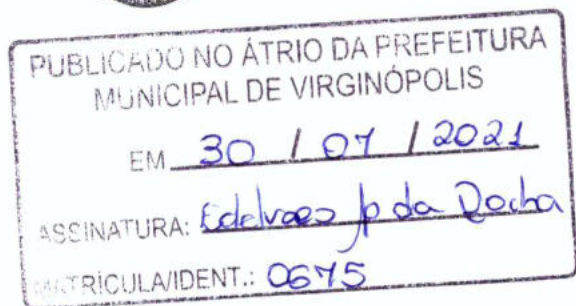 PUBLICADO NO ÁTRIO DA PREFEITURA
MUNICIPAL DE VIRGINÓPOLIS
EM 30 / 07 / 2021
ASSINATURA: da Rocha
MATRÍCULA/IDENT.: 0675